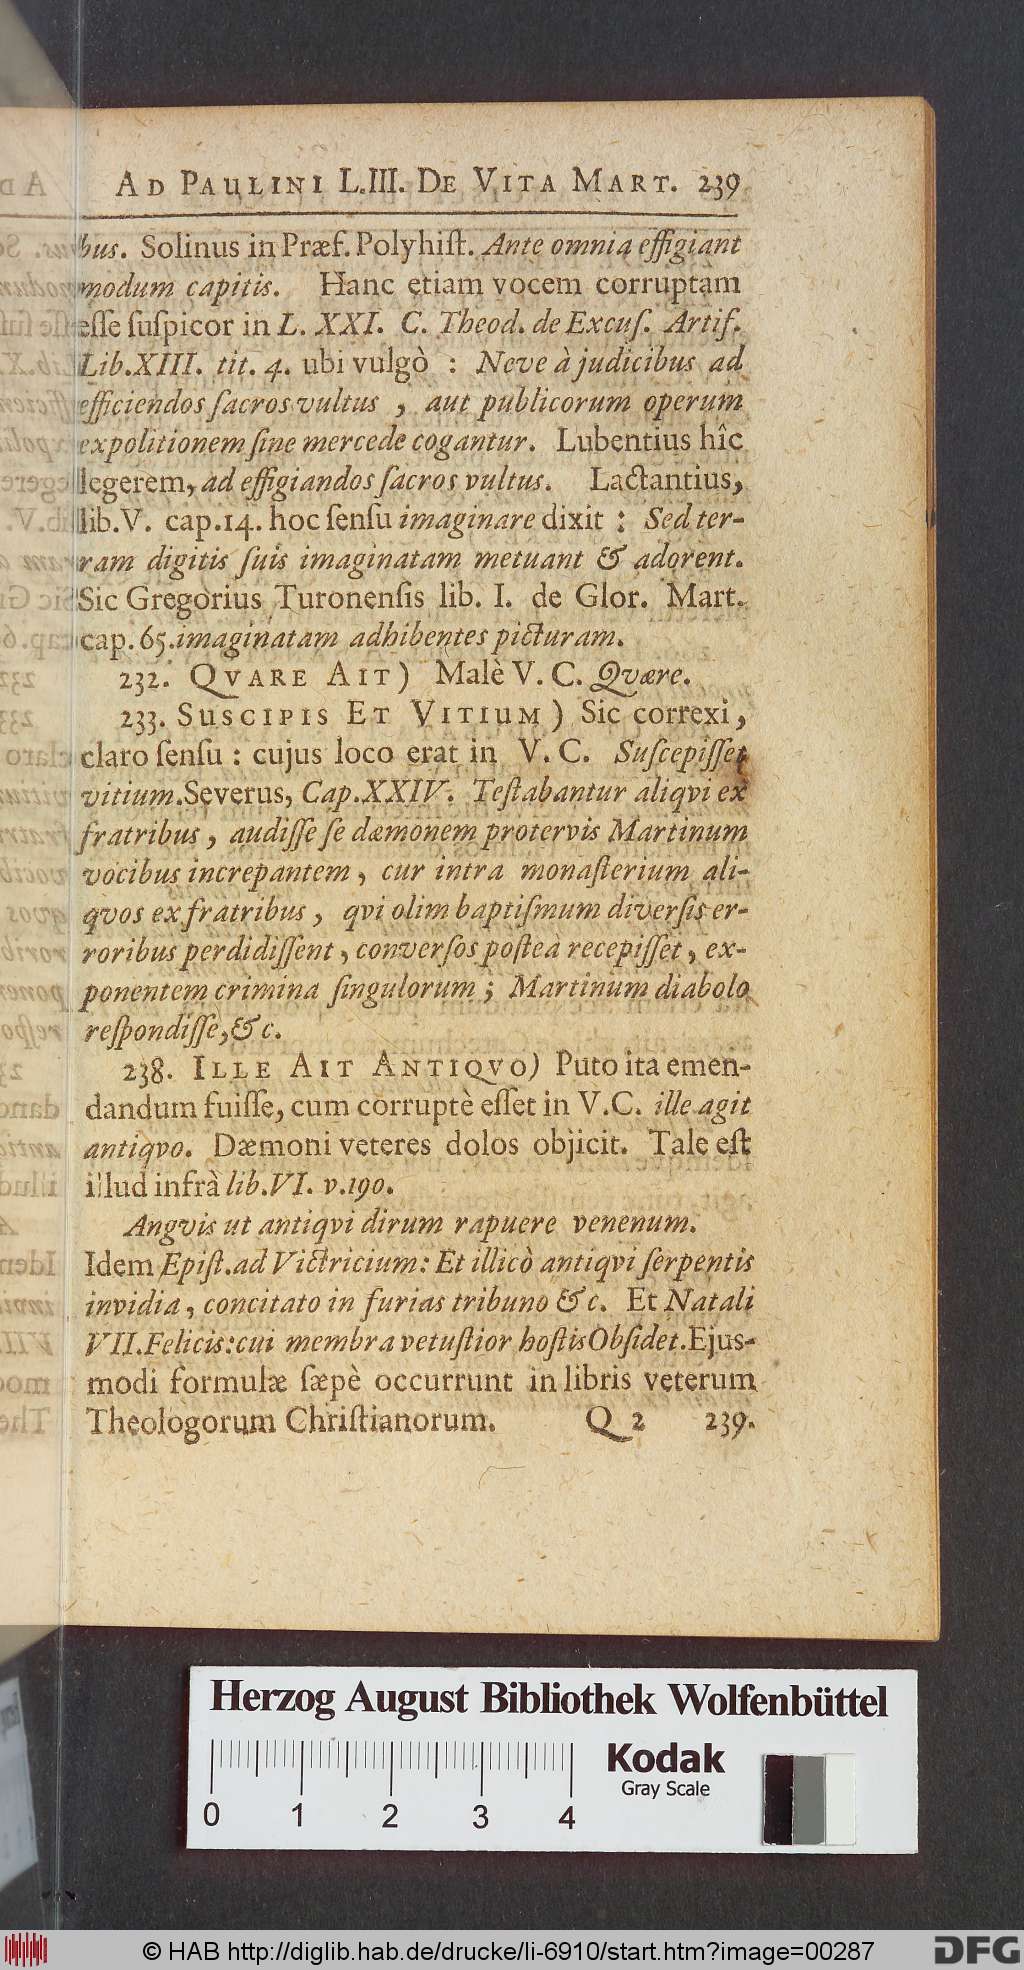 AD PAULINI L.III. DE VITA MART. 239
bus. Solinus in Præf. Polyhiſt. Ante omnia effigiant
modum capitis. Hanc etiam vocem corruptam
eſſe ſuſpicor in L. XXI. C. Theod. de Excuſ. Artif.
Lib.XIII. tit. 4. ubi vulgò : Neve à judicibus ad
efficiendos ſacros vultus , aut publicorum operum
expolitionem ſine mercede cogantur. Lubentius hîc
legerem, ad effigiandos ſacros vultus. Lactantius,
lib.V. cap.14. hoc ſenſu imaginare dixit : Sed ter-
ram digitis ſuis imaginatam metuant & adorent.
Sic Gregorius Turonenſis lib. I. de Glor. Mart.
cap. 65.imaginatam adhibentes picturam.
232. QVARE AIT) Malè V. C. Qvære.
233. SUSCIPIS ET VITIUM) Sic correxi,
claro ſenſu : cujus loco erat in V. C. Suſcepiſſet
vitium.Severus, Cap.XXIV. Teſtabantur aliqvi ex
fratribus, audiſſe ſe dæmonem protervis Martinum
vocibus increpantem, cur intra monaſterium ali-
qvos ex fratribus, qvi olim baptiſmum diverſis er-
roribus perdidiſſent, converſos poſtea recepiſſet, ex-
ponentem crimina ſingulorum ; Martinum diabolo
reſpondiſſe,&c.
238. ILLE AIT ANTIQVO) Puto ita emen-
dandum fuiſſe, cum corruptè eſſet in V.C. ille agit
antiqvo. Dæmoni veteres dolos objicit. Tale eſt
illud infrà lib.VI. v.190.
Angvis ut antiqvi dirum rapuere venenum.
Idem Epiſt.ad Victricium: Et illicò antiqvi ſerpentis
invidia, concitato in furias tribuno &c. Et Natali
VII.Felicis:cui membra vetuſtior hoſtis Obſidet.Ejus-
modi formulæ ſæpè occurrunt in libris veterum
Theologorum Chriſtianorum. Q 2 239.
Herzog August Bibliothek Wolfenbüttel
Kodak
Gray Scale
0 1 2 3 4
© HAB http://diglib.hab.de/drucke/li-6910/start.htm?image=00287
DFG